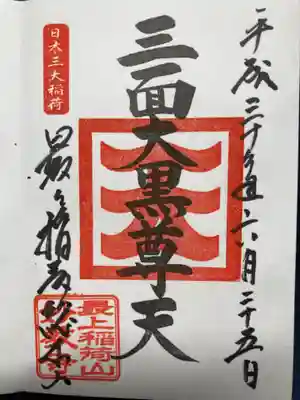 平成三十年六月二十五日
三面大黒尊天
日本三大稲荷
最上稲荷総本山
最上稲荷山
妙教寺